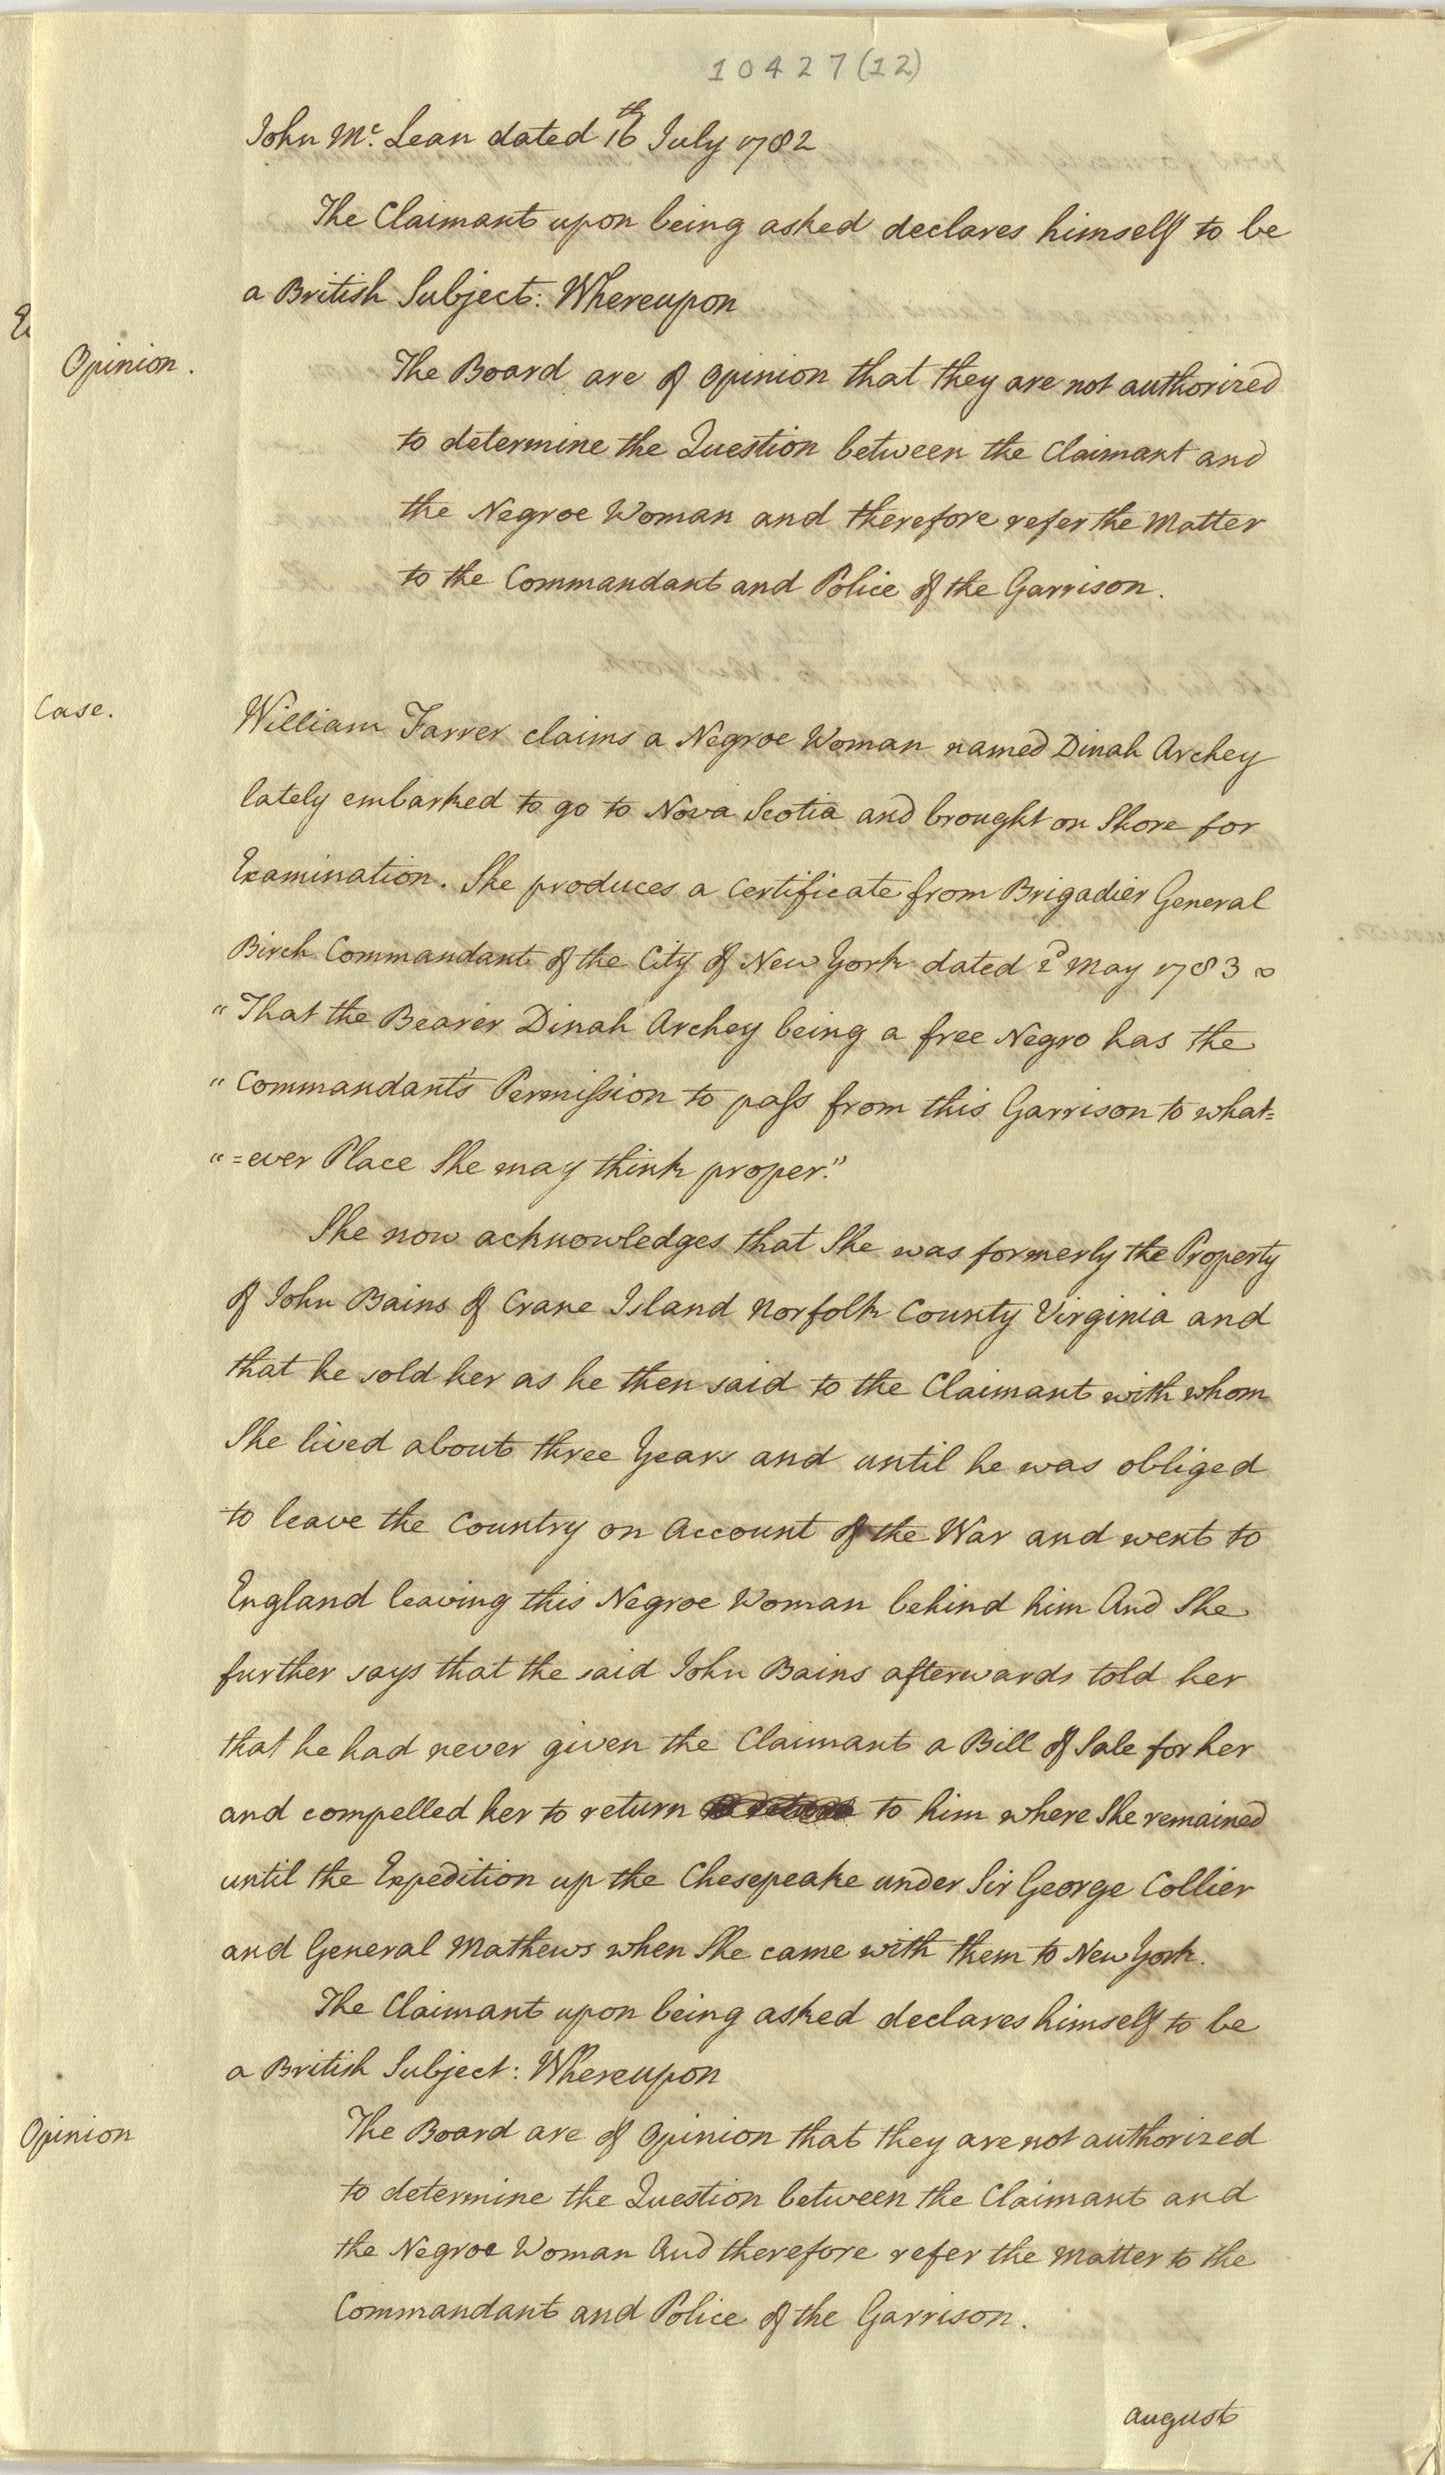 10427(12)
John Mc. Lean dated 16th July 1782
The Claimant upon being asked declares himself to be
a British Subject: Whereupon
Opinion.
The Board are of Opinion that they are not authorized
to determine the Question between the Claimant and
the Negroe Woman and therefore refer the Matter
to the Commandant and Police of the Garrison.
Case.
William Farrer claims a Negroe Woman named Dinah Archey
lately embarked to go to Nova Scotia and brought on Shore for
Examination. She produces a Certificate from Brigadier General
Birch Commandant of the City of New York dated 2d May 1783
"That the Bearer Dinah Archey being a free Negro has the
"Commandant's Permission to pass from this Garrison to what=
"=ever Place She may think proper."
She now acknowledges that She was formerly the Property
of John Bains of Crane Island Norfolk County Virginia and
that he sold her as he then said to the Claimant with whom
She lived about three Years and until he was obliged
to leave the Country on Account of the War and went to
England leaving this Negroe Woman behind him And She
further says that the said John Bains afterwards told her
that he had never given the Claimant a Bill of Sale for her
and compelled her to return to him where She remained
until the Expedition up the Chesepeake under Sir George Collier
and General Mathews when She came with them to New York.
The Claimant upon being asked declares himself to be
a British Subject: Whereupon
Opinion
The Board are of Opinion that they are not authorized
to determine the Question between the Claimant and
the Negroe Woman And therefore refer the Matter to the
Commandant and Police of the Garrison.
August